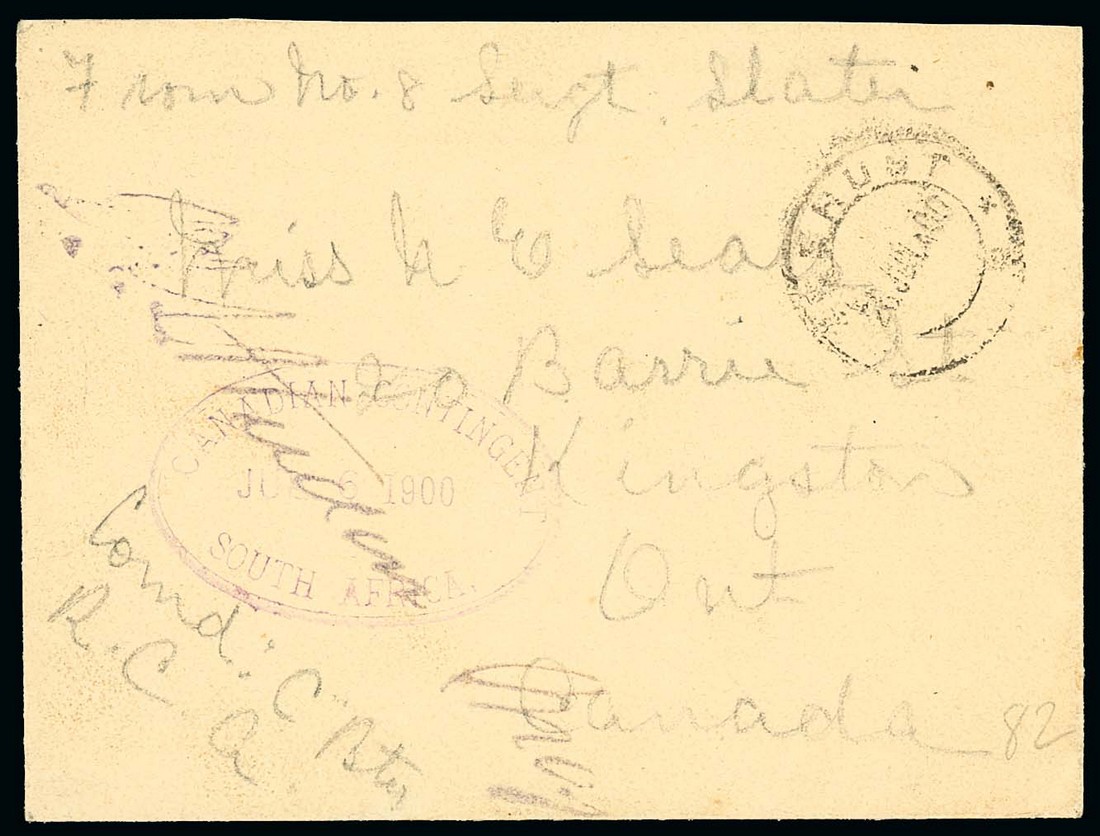 From No. 8 Sergt. Slater
Miss N E
20 Barrie St
Kingston
Ont
Canada
82
ERUST *
CANADIAN CONTINGENT
6 1900
SOUTH AFRICA.
Comd. "C" Bty
R. C. A